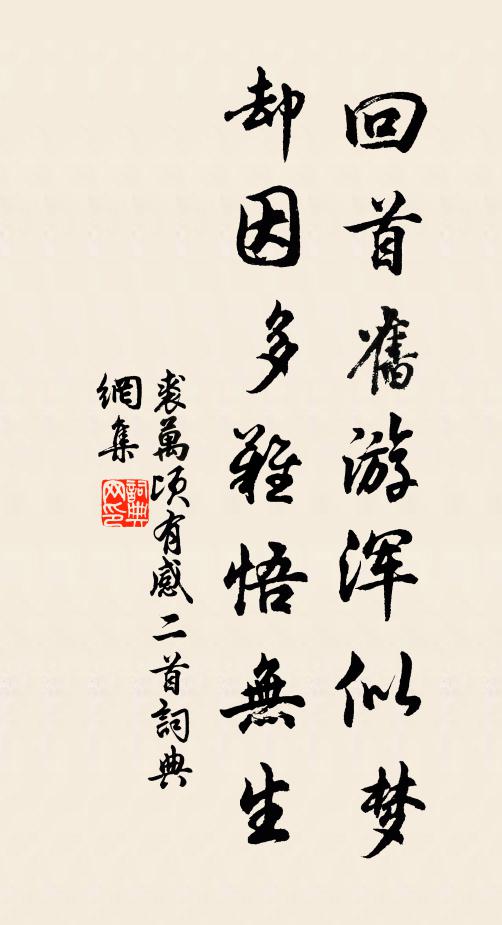 回首舊游渾似梦
却因多難悟無生
裘萬頃有感二首詞典
網集
詞典
网印